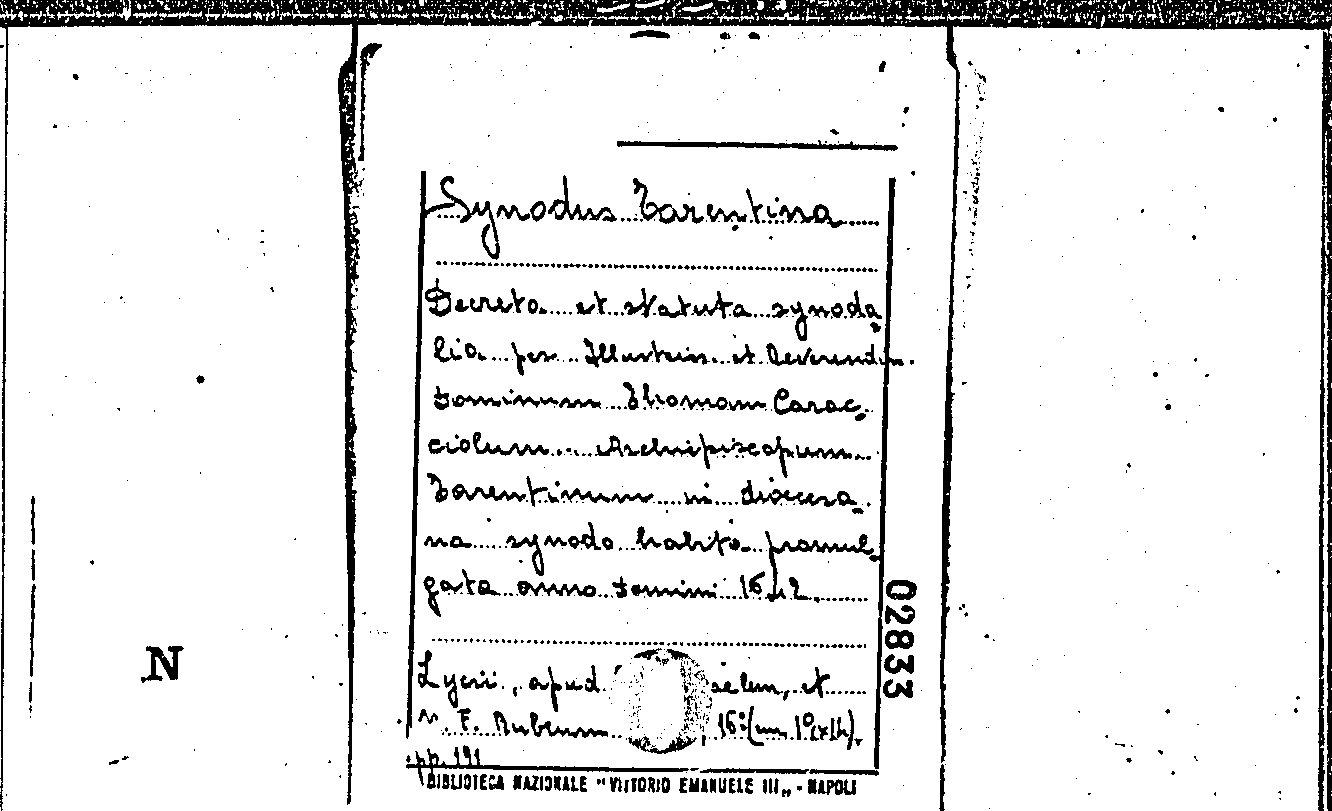 Synodus Tarentina
Decreta et statuta synoda-
lia per Illustriss. et Reverendiss.
dominum Thomam Carac-
ciolum Archipiscopum
Tarentinum in diocesa-
na synodo habita promul-
gata anno domini
Lycii, apud et
F. 16° (cm.
pp. 191
BIBLIOTECA NAZIONALE "VITTORIO EMANUELE III„ - NAPOLI
02833
N